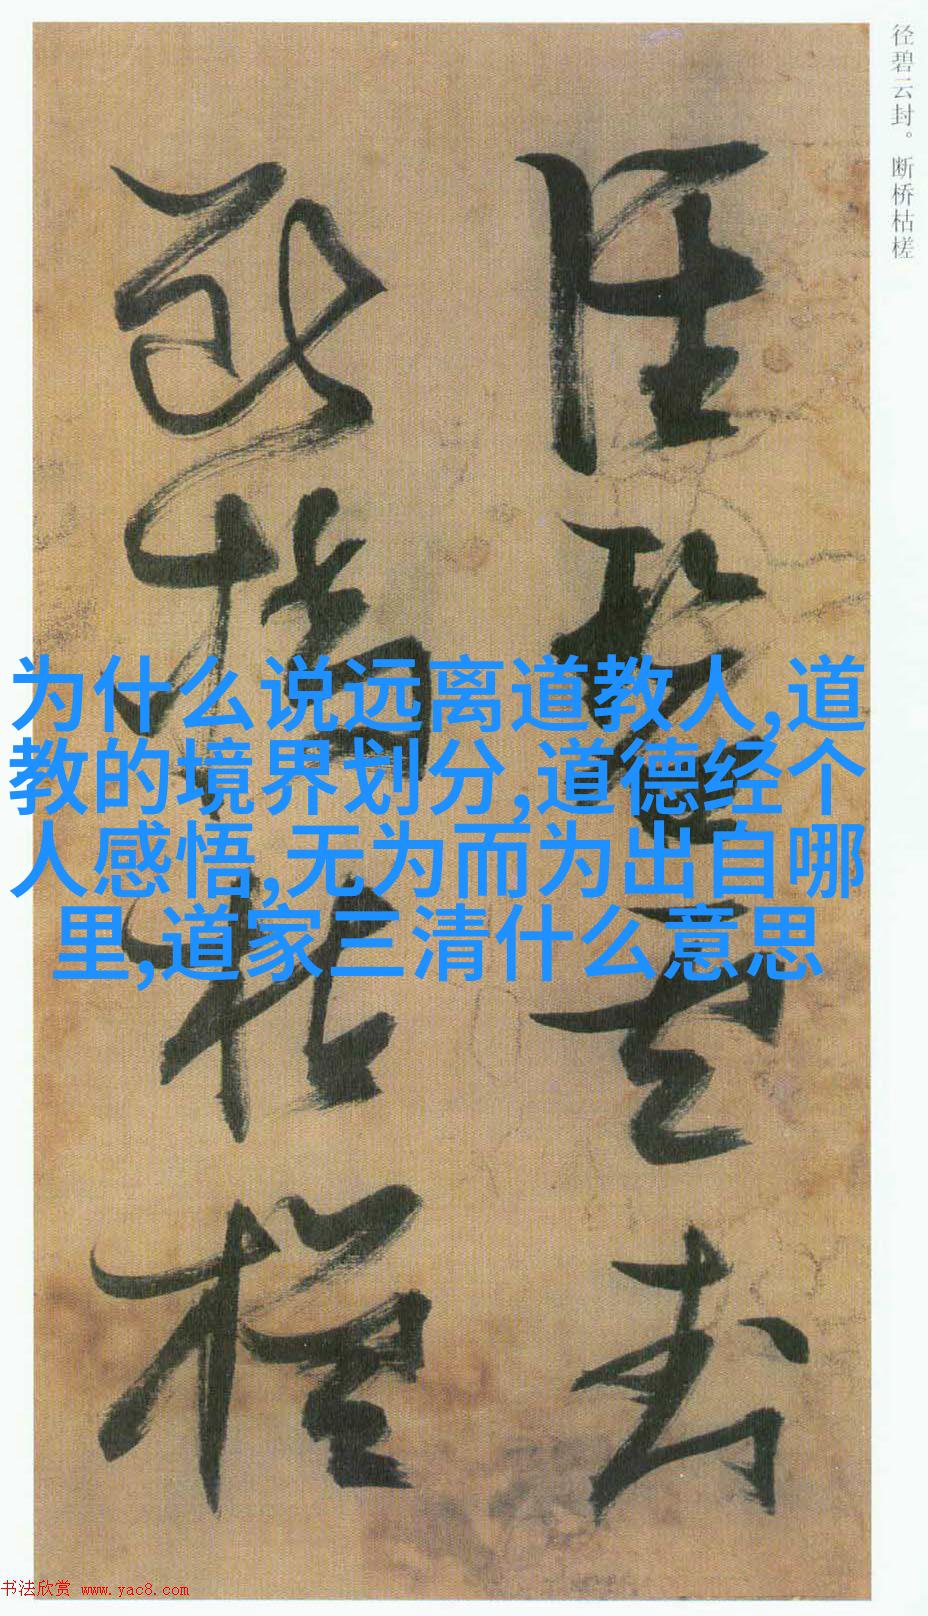 径碧云封。断桥枯槎
径碧云封
断桥枯槎
为什么说远离道教人,道
教的境界划分,道德经个
人感悟,无为而为出自哪
里,道家三清什么意思
书法欣赏 www.yac8.com